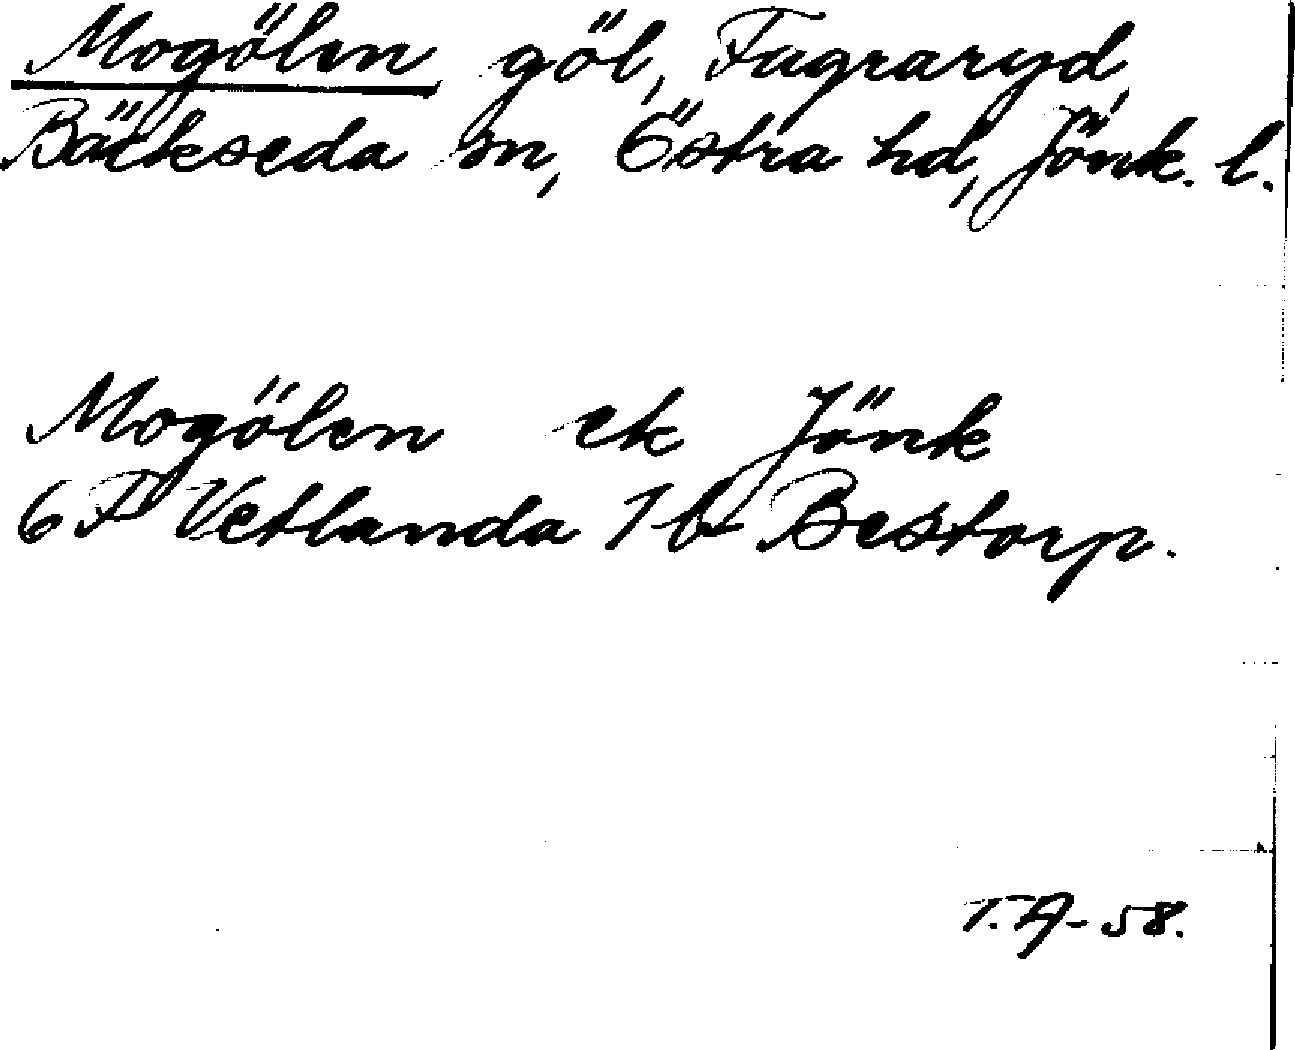 Mogölen göl, Fugraryd,
Bäckseda sn, Östra hd, Jönk. l.
Mogölen ek Jönk
6F Vetlanda 1 b Bestorp.
T.A-58.